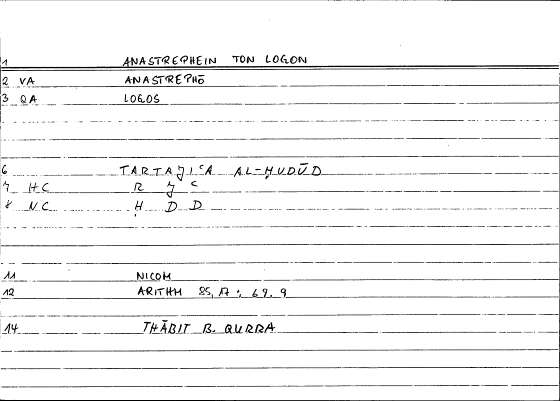 1 ANASTREPHEIN TON LOGON
2 VA ANASTREPHŌ
3 QA LOGOS
6 TARTAJIʿA AL-ḤUDŪD
7 HC R J ʿ
8 NC Ḥ D D
11 NICOM
12 ARITHM 85, 17 ; 69. 9
14 THĀBIT B. QURRA